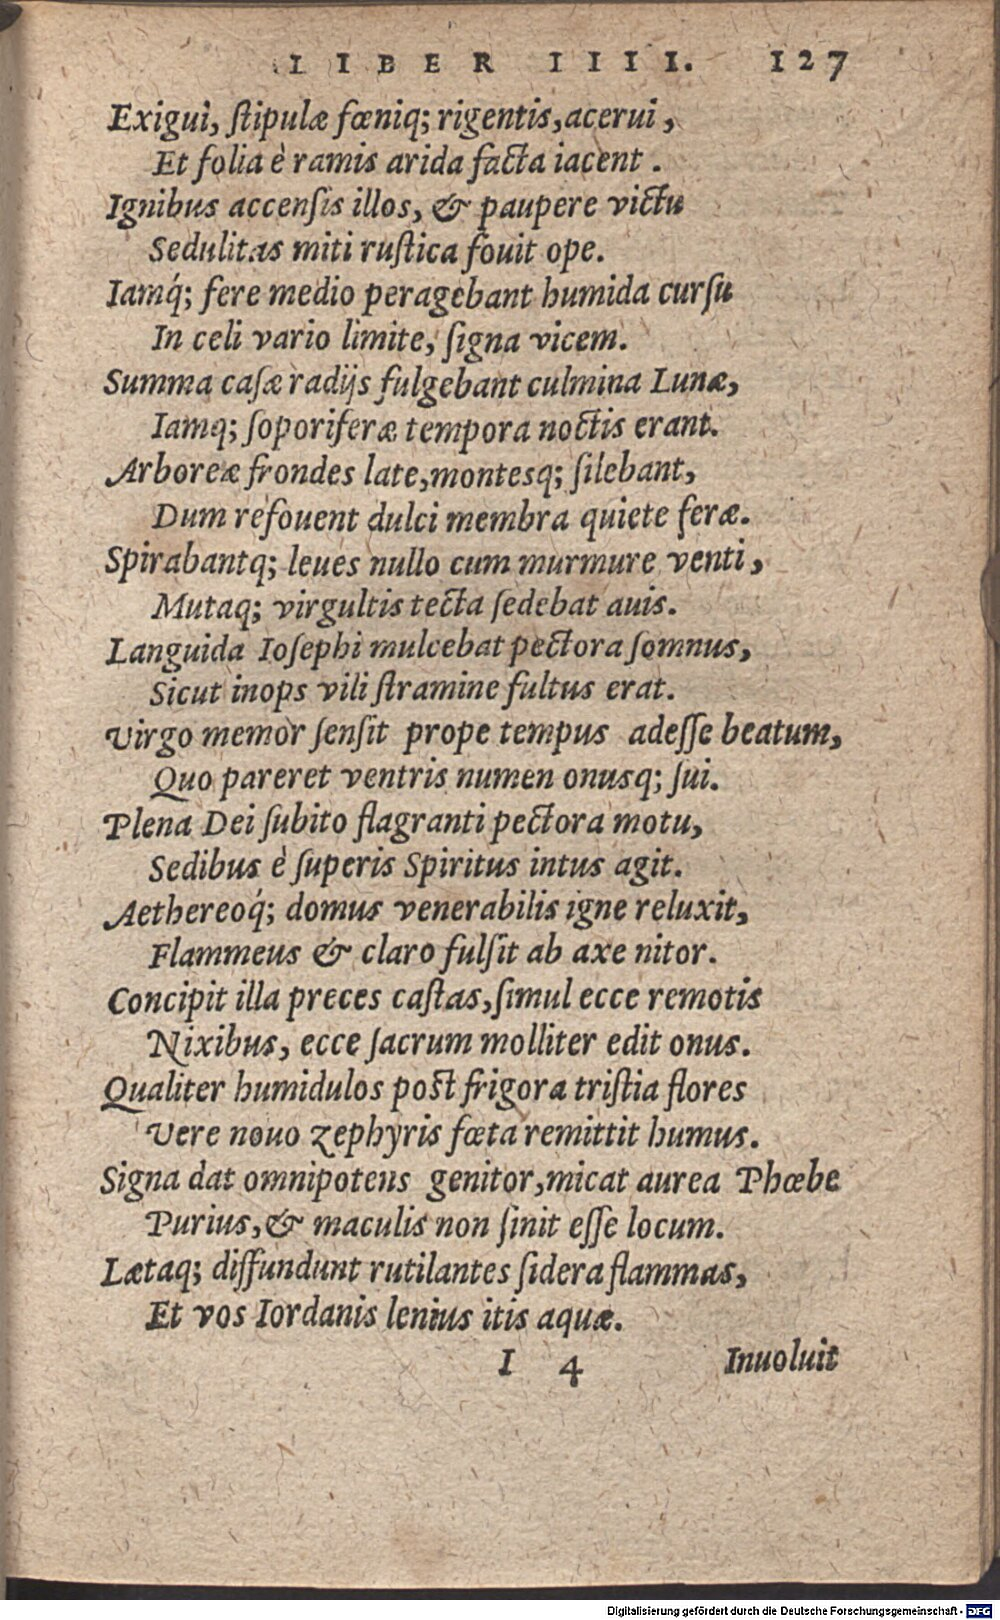 LIBER IIII. 127
Exigui, ſtipulæ fœniq; rigentis, acerui,
Et folia è ramis arida facta iacent.
Ignibus accenſis illos, & paupere victu
Sedulitas miti ruſtica fouit ope.
Iamq́; fere medio peragebant humida curſu
In celi vario limite, ſigna vicem.
Summa caſæ radijs fulgebant culmina Lunæ,
Iamq; ſoporiferæ tempora noctis erant.
Arboreæ frondes late, montesq; ſilebant,
Dum refouent dulci membra quiete feræ.
Spirabantq; leues nullo cum murmure venti,
Mutaq; virgultis tecta ſedebat auis.
Languida Ioſephi mulcebat pectora ſomnus,
Sicut inops vili ſtramine fultus erat.
Virgo memor ſenſit prope tempus adeſſe beatum,
Quo pareret ventris numen onusq; ſui.
Plena Dei ſubito flagranti pectora motu,
Sedibus è ſuperis Spiritus intus agit.
Aethereoq́; domus venerabilis igne reluxit,
Flammeus & claro fulſit ab axe nitor.
Concipit illa preces caſtas, ſimul ecce remotis
Nixibus, ecce ſacrum molliter edit onus.
Qualiter humidulos poſt frigora triſtia flores
Vere nouo zephyris fœta remittit humus.
Signa dat omnipotens genitor, micat aurea Phœbe
Purius, & maculis non ſinit eſſe locum.
Lætaq; diffundunt rutilantes ſidera flammas,
Et vos Iordanis lenius itis aquæ.
I 4 Inuoluit
Digitalisierung gefördert durch die Deutsche Forschungsgemeinschaft - DFG